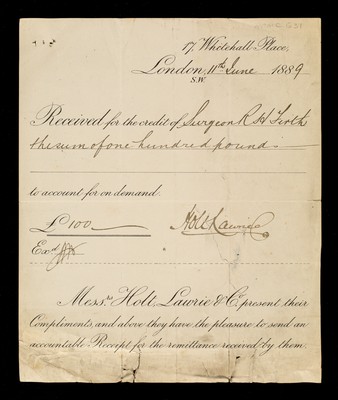 17, Whitehall Place,
London, 11th June 1889
S.W.
Received for the credit of Surgeon R H Firth
the sum of one hundred pound
to account for on demand.
£100
Holt Lawrie & Co
Exd.
Messrs. Holt, Lawrie & Co. present their
Compliments, and above they have the pleasure to send an
accountable Receipt for the remittance received by them.